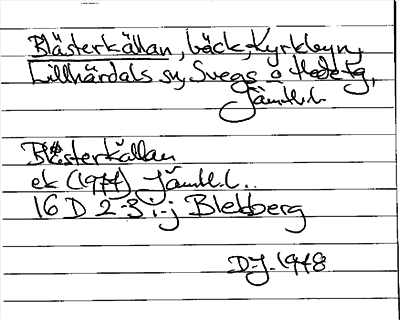 Blästerkällan, bäck, Kyrkbyn,
Lillhärdals sn, Svegs o Hede tg,
Jämtl. l.
Blästerkällan
ek (1977) Jämtl. l..
16 D 2-3 i-j Blekberg
D-J. 1978